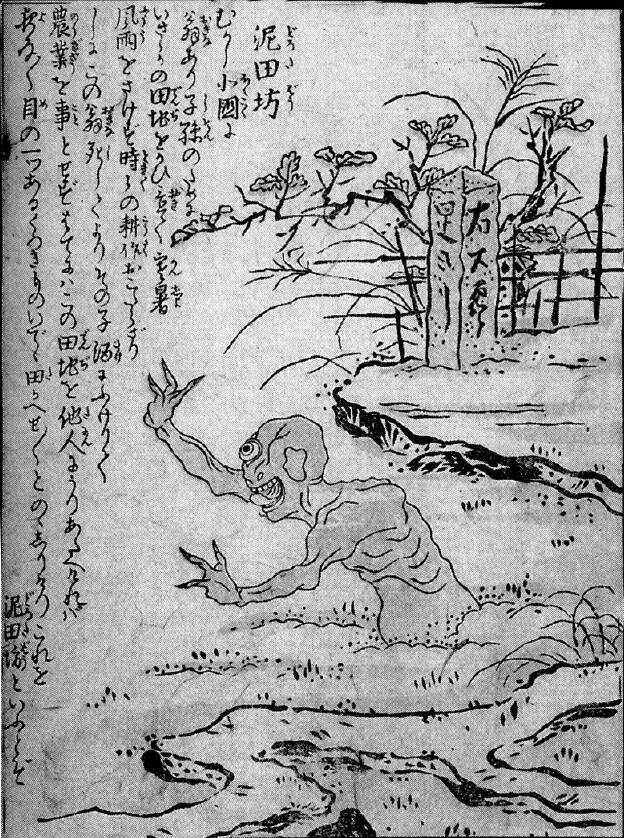 泥田坊
むかし北國に
翁あり子孫のために
いさゝかの田地をかひ置て寒暑
風雨をさけず時〻の耕作おこたらざり
しにこの翁死してよりその子酒にふけりて
農業を事とせずはてにはこの田地を他人にうりあたへければ
夜な〱目の一つあるくろきものいでゝ田かへせ〱とのゝしりけるこれを
泥田坊といふとぞ